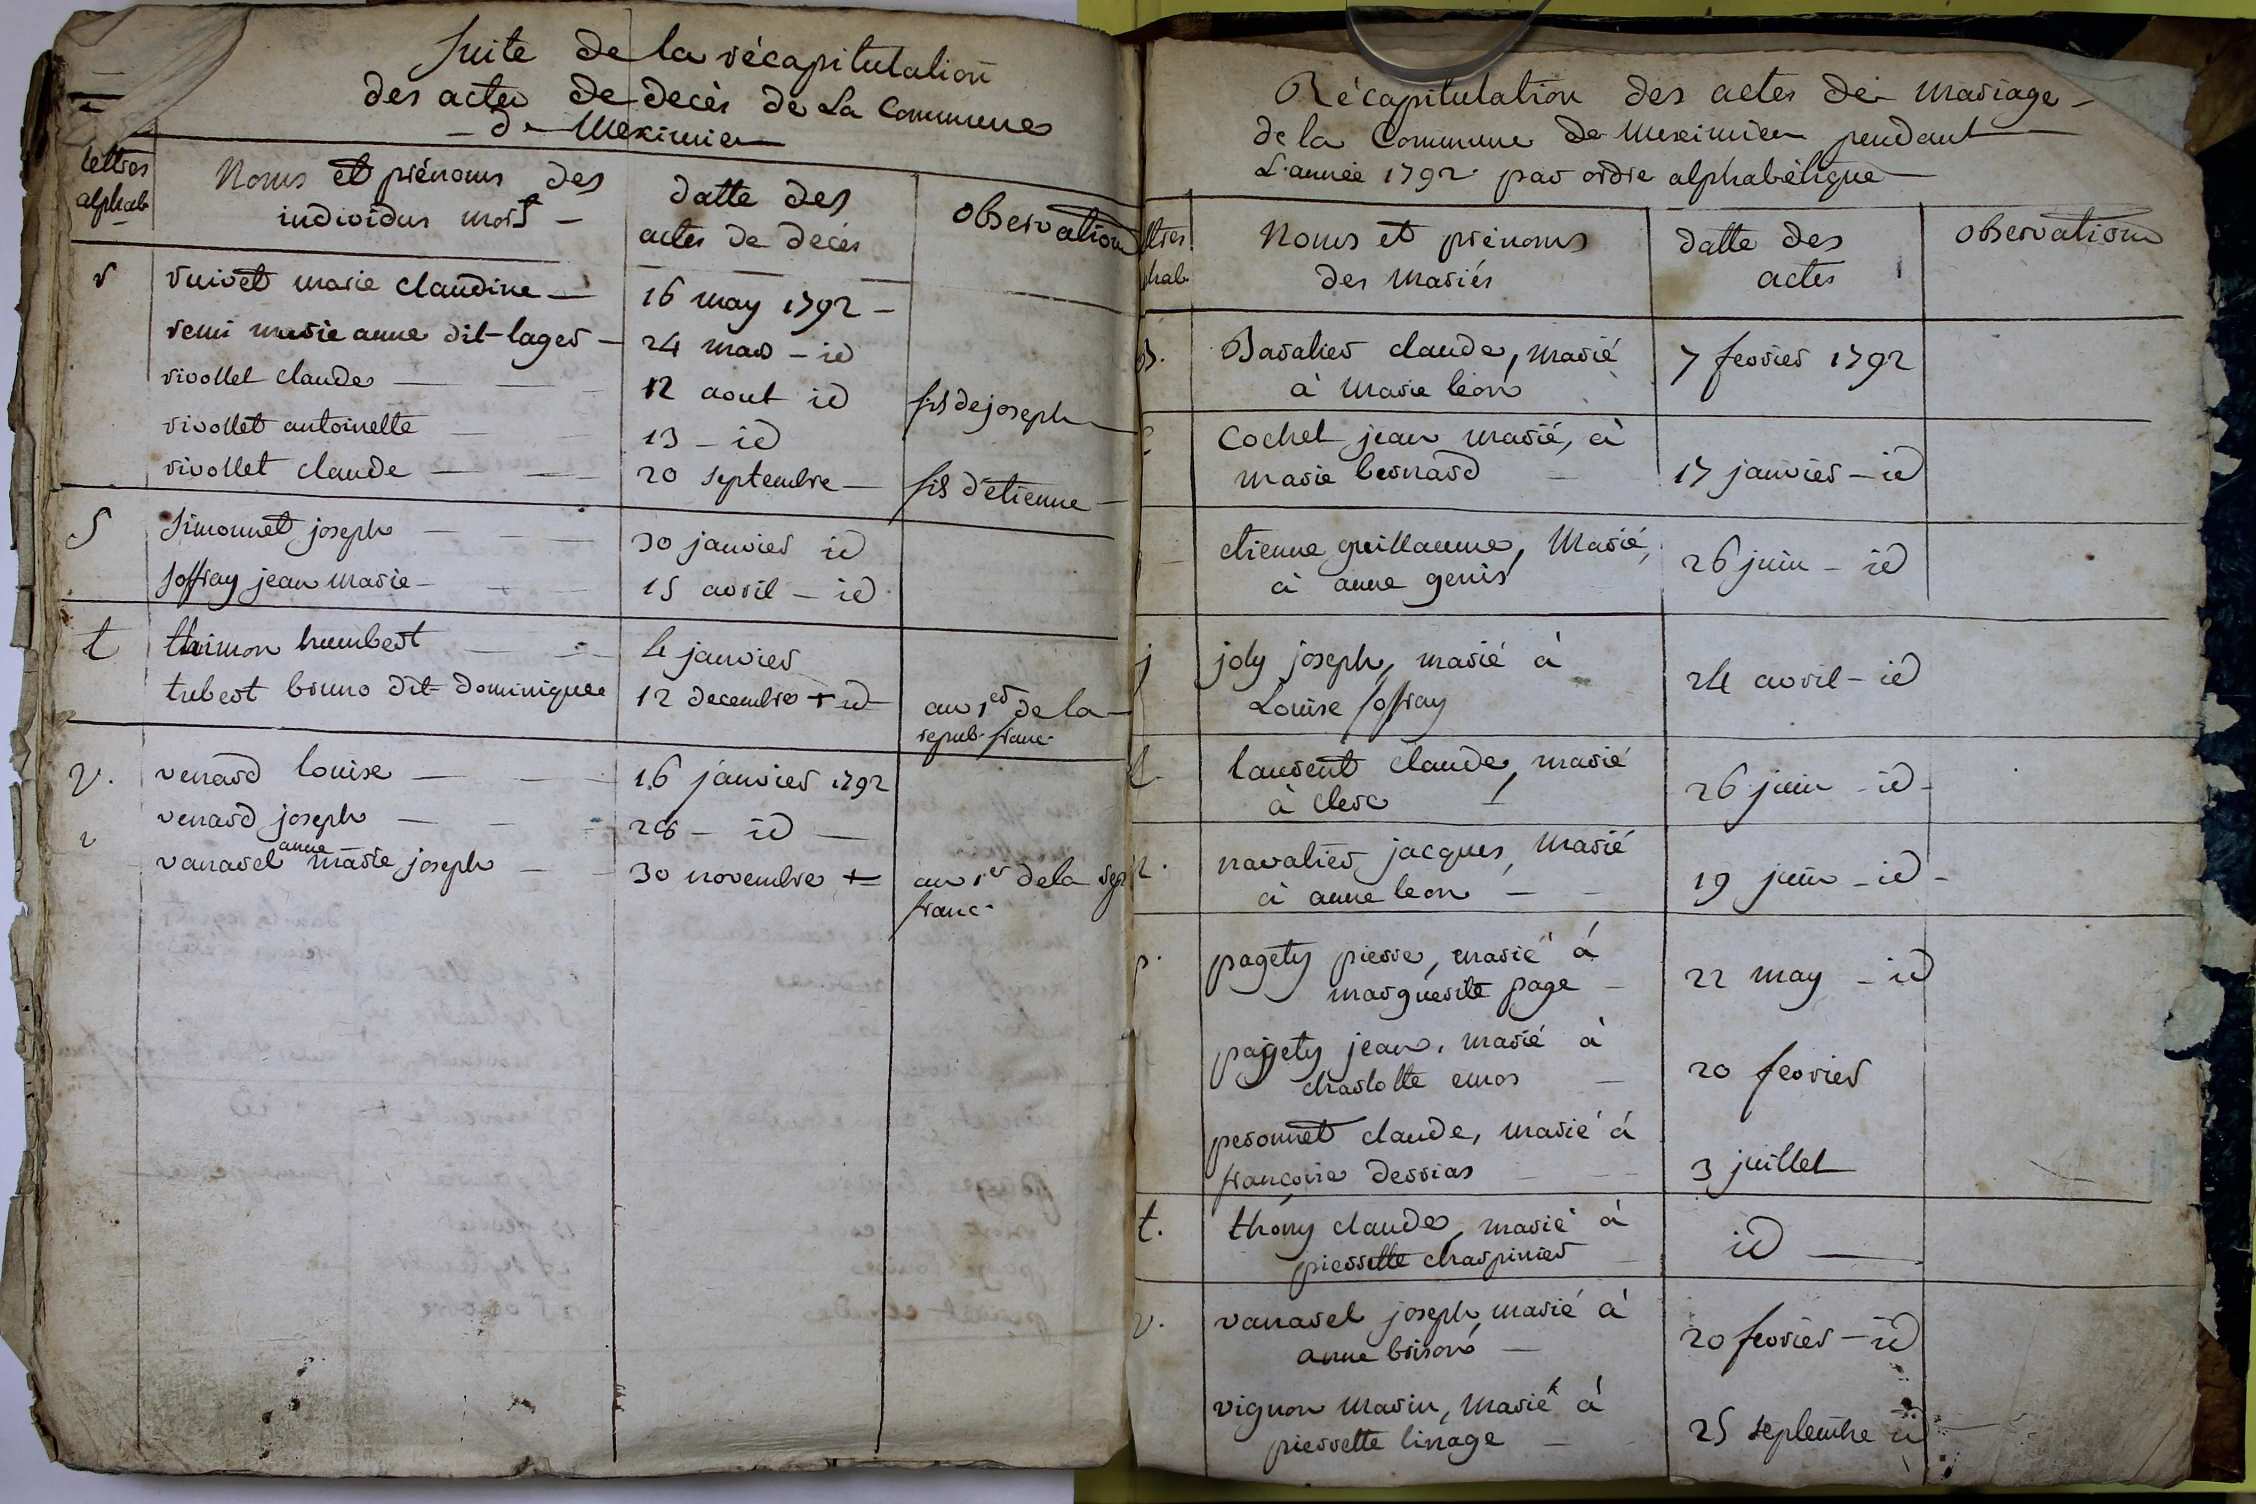 Suite de la récapitulation
des actes de decès de La Commune
de Meximieu
lettres alphab
Noms et prénoms des individus morts
datte des actes de décès
observations
r
ruivet marie claudine 16 may 1792
remi marie anne dit lager 24 mars id
rivollet claude 12 aout id fils de joseph
rivollet antoinette 13 id
rivollet claude 20 septembre fils d'étienne
S
Simonnet joseph 30 janvier id
Soffray jean marie 15 avril id
t
thimon humbert 4 janvier
trebert bruno dit dominique 12 decembre + id an 1er de la
repub. franc.
v.
venard louise 16 janvier 1792
venard joseph 28 id
v
vanarel anne marie joseph 30 novembre + an 1er de la rep
franc.
Récapitulation des actes de mariage
de la Commune de Meximieu pendant
L'année 1792 par ordre alphabétique
Noms et prénoms des mariés
datte des actes
observations
B.
Baralier claude, marié
à marie léon 7 fevrier 1792
C
Cochet jean marié, à
marie bernard 17 janvier id
etienne guillaume, Marié,
à anne genis 26 juin id
j
joly joseph, marié à
Louise soffray 24 avril id
l
laurent claude, marié
à clerc 26 juin id
n.
navalier jacques, marié
à anne leon 19 juin id
p.
pagety pierre, marié à
marguerite page 22 may id
pagety jean, marié à
charlotte emos 20 fevrier
peronnet claude, marié à
françoise dessias 3 juillet
t.
thony claude, marié à
pierrette charpinier id
v.
vanarel joseph, marié à
anne brison 20 fevrier id
vignon marin, marié à
pierrette linage 25 septembre id